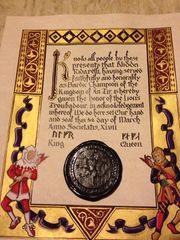 Know all people by these
presents that
having served
faithfully and honorably
as Bardic Champion of the
Kingdom of An Tir, is hereby
given the honor of the Lion's
Troubadour in acknowledgement
whereof We do here set Our hand
and seal this day of March
Anno Societatus XLVII
King
Queen